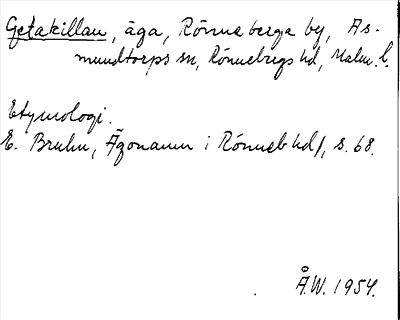 Getakillan, äga, Rönneberga by, As-
mundtorps sn, Rönnebergs hd, Malm. l.
Etymologi.
E. Bruhn, Ägonamn i Rönneb hd, s. 68.
Å.W. 1954.